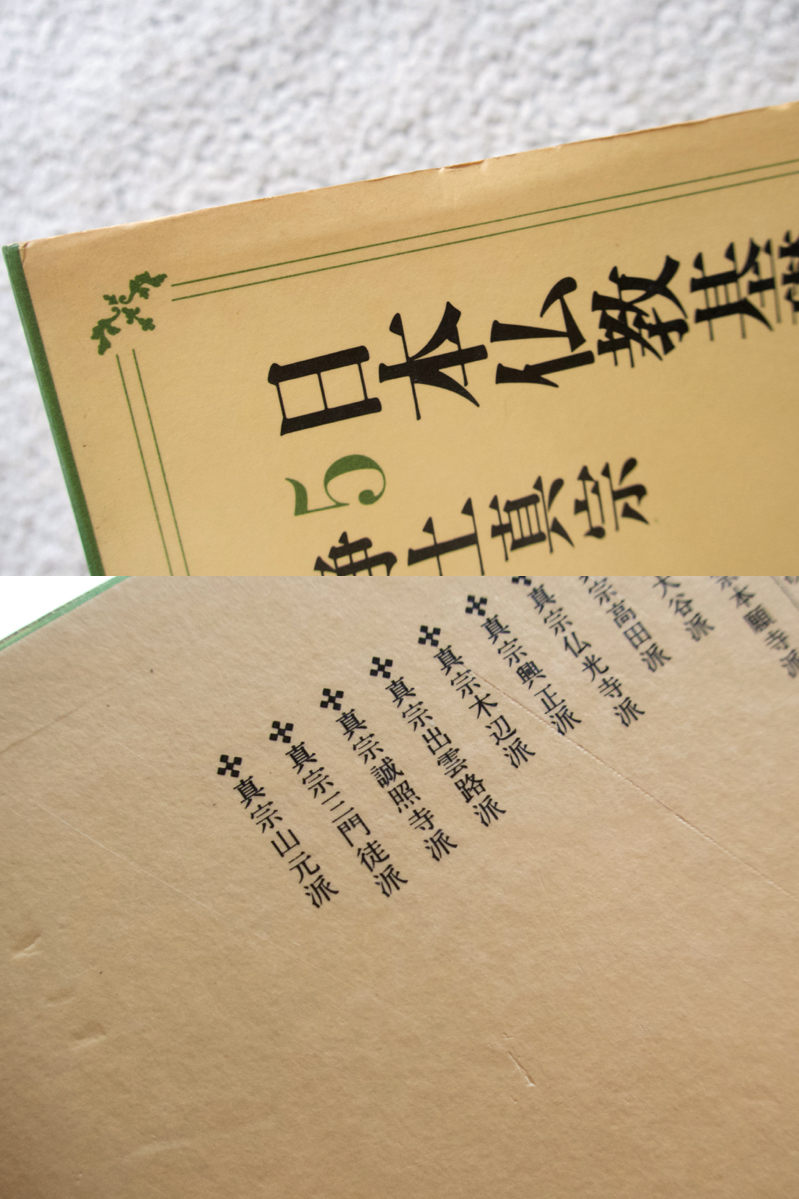 日本仏教基
5
浄土真宗
本願寺派
大谷派
宗高田派
真宗仏光寺派
真宗興正派
真宗木辺派
真宗出雲路派
真宗誠照寺派
真宗三門徒派
真宗山元派